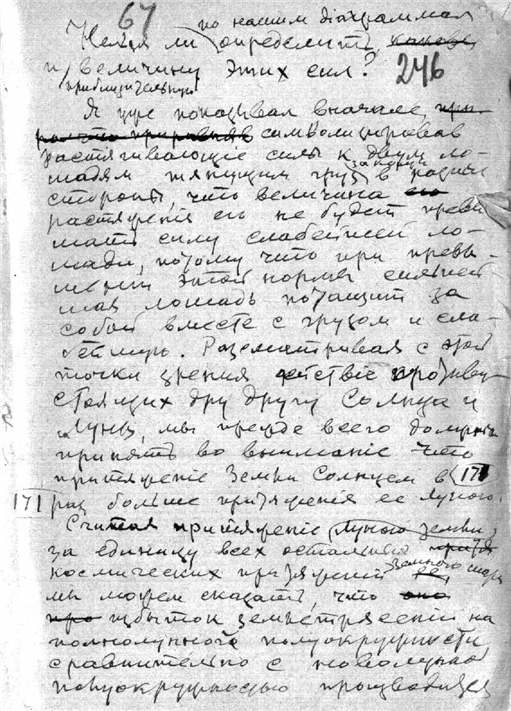 67 по нашим діаграммам
Нельзя ли определить
и величину этих сил? 246
приблизительную
Я уже показывал вначале, при-
символизировав
растягивающие силы к двум ло-
шадям тянущим груз в разные
стороны, что величина его
растяжения его не будет превы
шать силу слабейшей ло-
шади, потому что при превы-
шении этой нормы сильней
шая лошадь потащит за
собой вместе с грузом и сла-
бейшую. Рассматривая с этой
точки зрения действие противу
стоящих друг другу Солнца и
Луны, мы прежде всего должны
принять во внимание что
притяжение Земли Солнцем в 171
171 раз больше притяжения ее Луною.
Считая притяжение Луною Земли
за единицу всех остальных
космических притяжений земного шара
мы можем сказать, что оно
про избыток землетрясений на
полнолунной полуокружности,
сравнительно с новолунной
полуокружностью производится